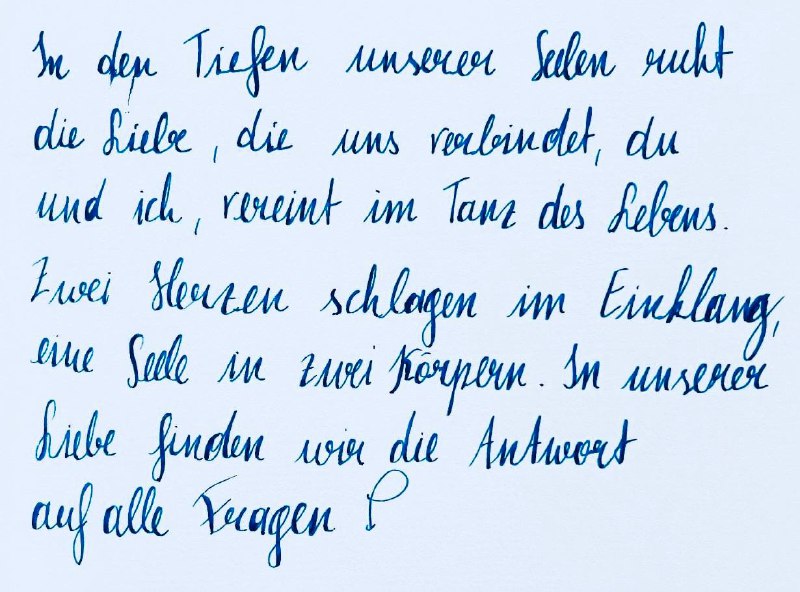 In den Tiefen unserer Seelen ruht
die Liebe, die uns verbindet, du
und ich, vereint im Tanz des Lebens.
Zwei Herzen schlagen im Einklang,
eine Seele in zwei Körpern. In unserer
Liebe finden wir die Antwort
auf alle Fragen!